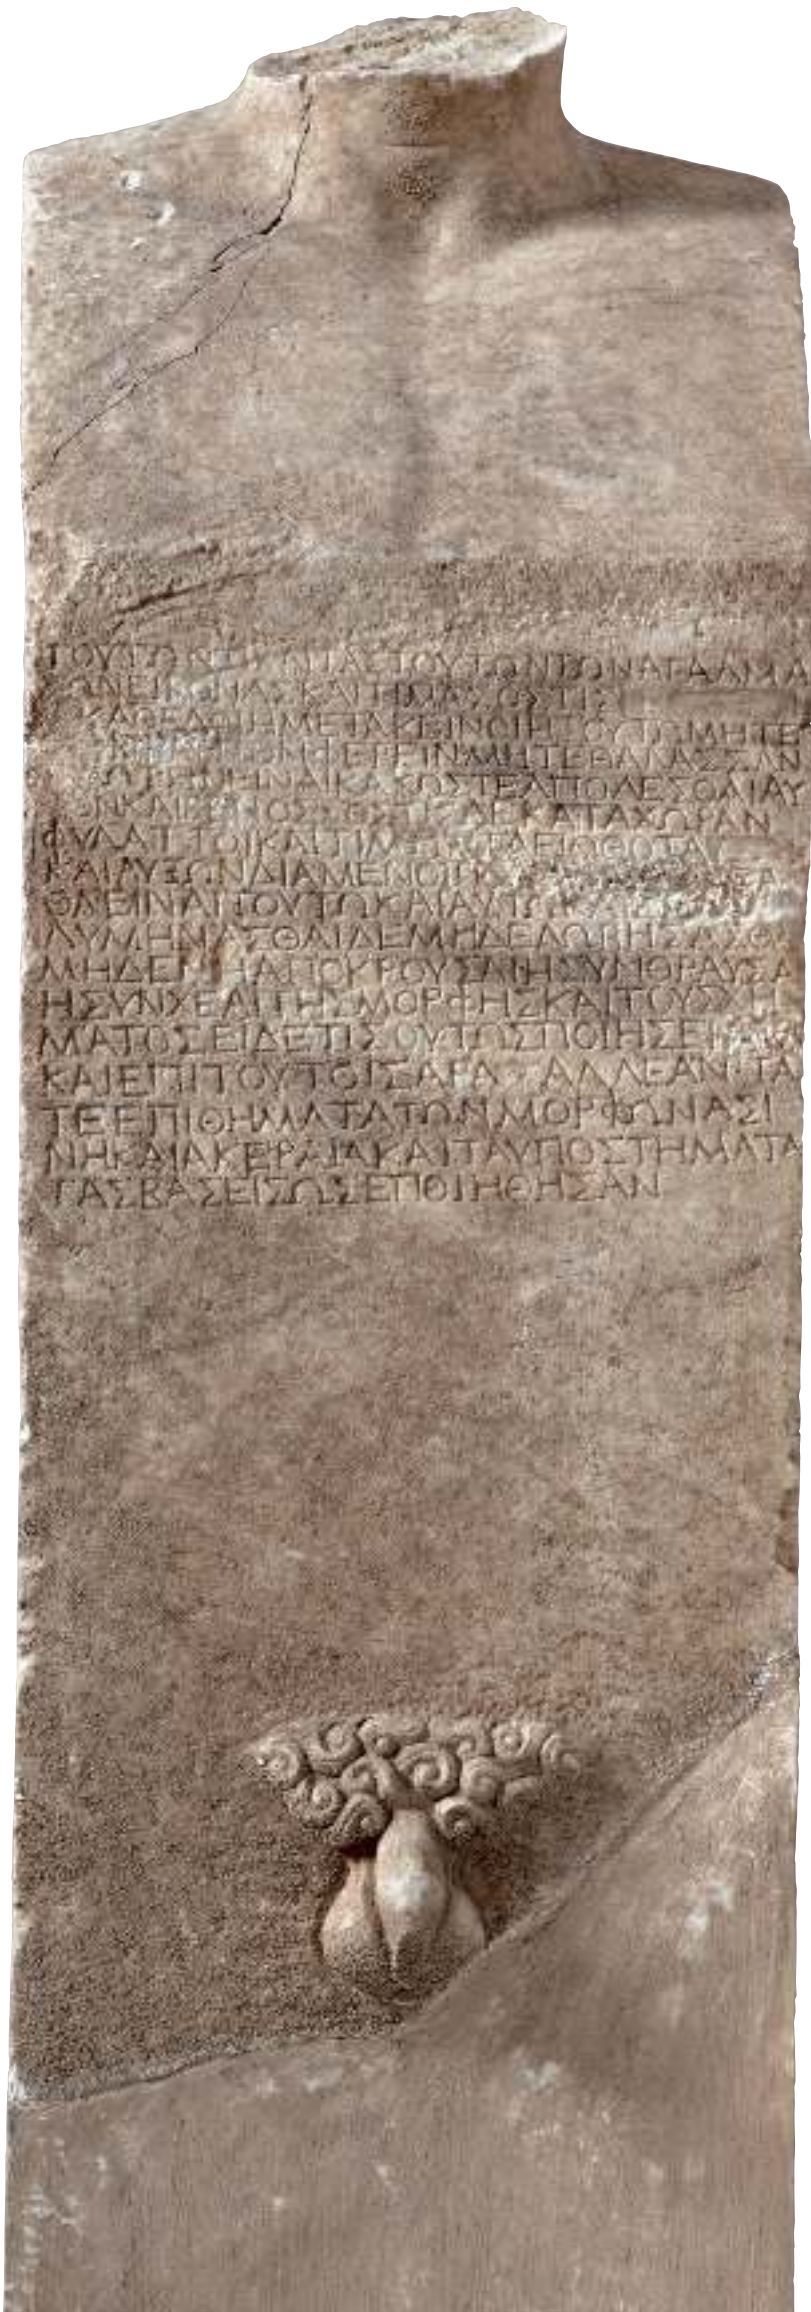 ΤΟΥΤΩΝ ΤΩΝ ΑΓΑΛΜΑ
ΤΩΝ ΕΙΚΟΝΑΣ ΚΑΙ ΤΙΜΑΣ ΟΣΤΙΣ
ΚΑΘΕΛΟΙ Η ΜΕΤΑΚΕΙΝΟΙΗ ΤΟΥΤΩ ΜΗΤΕ
ΦΕΡΕΙΝ ΜΗΤΕ ΘΑΛΑΣΣΑΝ
ΚΑΚΩΣ ΤΕ ΑΠΟΛΕΣΘΑΙ ΑΥ
ΚΑΙ ΓΕΝΟΣ ΟΣΤΙΣ ΔΕ ΚΑΤΑ ΧΩΡΑΝ
ΦΥΛΑΤΤΟΙ ΚΑΙ ΤΙΜΩΝ ΤΑ ΕΙΩΘΟΤΑ
ΚΑΙ ΑΥΞΩΝ ΔΙΑΜΕΝΟΙ
ΘΑ ΕΙΝΑΙ ΤΟΥΤΩ ΚΑΙ ΑΥΤΩ ΚΑΙ
ΛΥΜΗΝΑΣΘΑΙ ΔΕ ΜΗΔΕ ΛΩΒΗΣΑΣΘ
ΜΗΔΕΝ Η ΑΠΟΚΡΟΥΣΑΙ Η ΣΥΝΘΡΑΥΣΑ
Η ΣΥΝΧΕΑΙ ΤΗΣ ΜΟΡΦΗΣ ΚΑΙ ΤΟΥ ΣΧΗ
ΜΑΤΟΣ ΕΙ ΔΕ ΤΙΣ ΟΥΤΩΣ ΠΟΙΗΣΕΙ
ΚΑΙ ΕΠΙ ΤΟΥΤΟΙΣ ΑΡΑ ΑΛΛ ΕΑΝ ΤΑ
ΤΕ ΕΠΙΘΗΜΑΤΑ ΤΩΝ ΜΟΡΦΩΝ ΑΣΙ
ΝΗ ΚΑΙ ΑΚΕΡΑΙΑ ΚΑΙ ΤΑ ΥΠΟΣΤΗΜΑΤΑ
ΤΑΣ ΒΑΣΕΙΣ ΩΣ ΕΠΟΙΗΘΗΣΑΝ